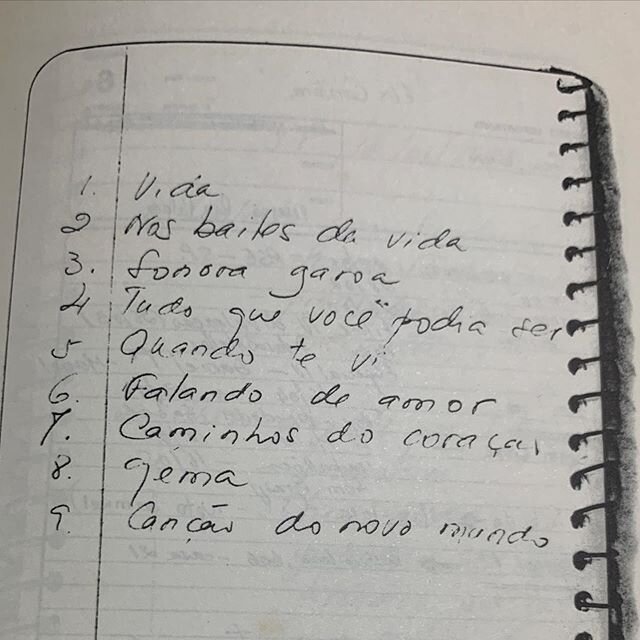 1. Vida
2 Nos bailes da vida
3. Sonora garoa
4 Tudo que você podia ser
5 Quando te vi
6. Falando de amor
7. Caminhos do coração
8. Gema
9. Canção do novo mundo